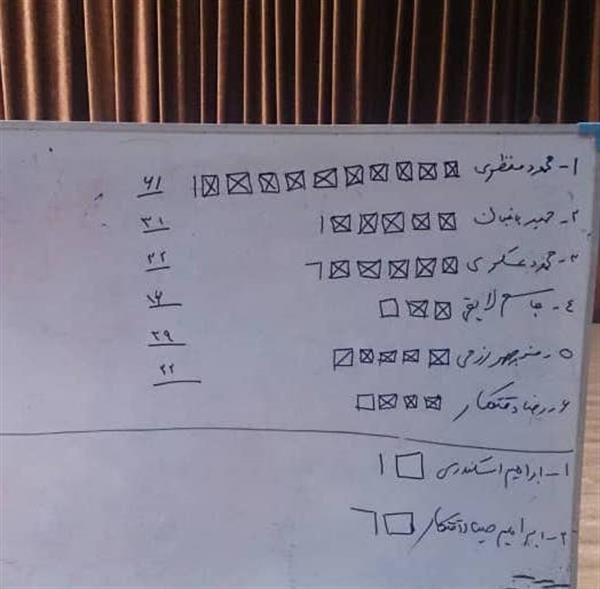 ۱- محمود منظری ۶۱
۲- حمید ۳۱
۳- محمود عسکری ۳۲
٤- جاسم لایقی ۱۶
۵- منوچهر رزمی ۲۹
۶- رضا دقتکار ۲۲
۱- ابراهیم اسکندری
۲- ابراهیم صیاد دقتکار